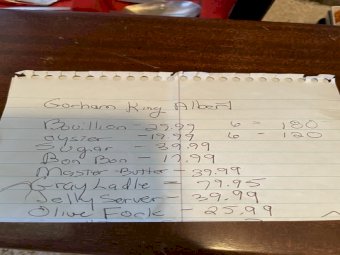 Gorham King Albert
Bouillion - 29.99 6 = 180
oyster - 19.99 6 - 120
Sugar - 39.99
Bon Bon - 17.99
Master Butter - 39.99
Gray Ladle = 79.95
Jelly Server - 39.99
Olive Fork - 25.99